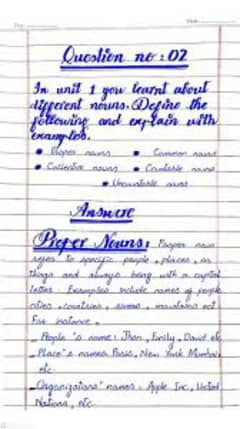 Question no : 02
In unit 1 you learnt about
different nouns. Define the
following and explain with
examples.
• Proper nouns • Common nouns
• Collective nouns • Countable nouns
• Uncountable nouns
Answere
Proper Nouns: Proper noun
refer to specific people, places, or
things and always being with a capital
letter. Examples include names of people
cities, countries, mountains ect
For instance,
_ People's name: Jhon, Emily, David etc
_ Place's names Paris, New York Mumbai,
etc.
_ Organizations' names: Apple Inc, United
Nations, etc.